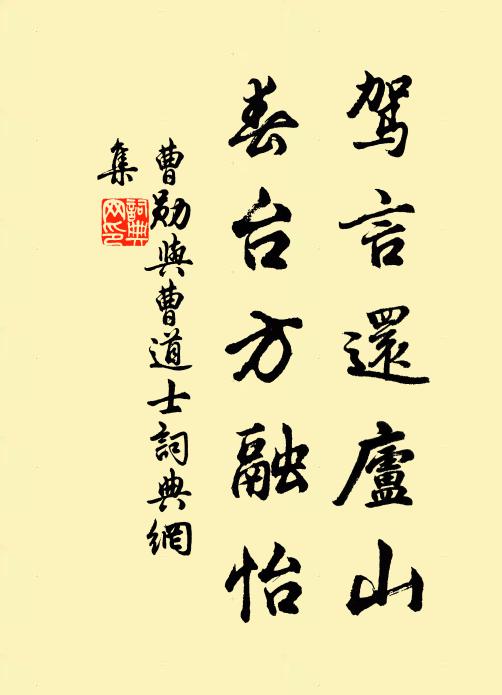 驾言還廬山
春台方融怡
曹勛與曹道士詞典網
集
詞典
网印